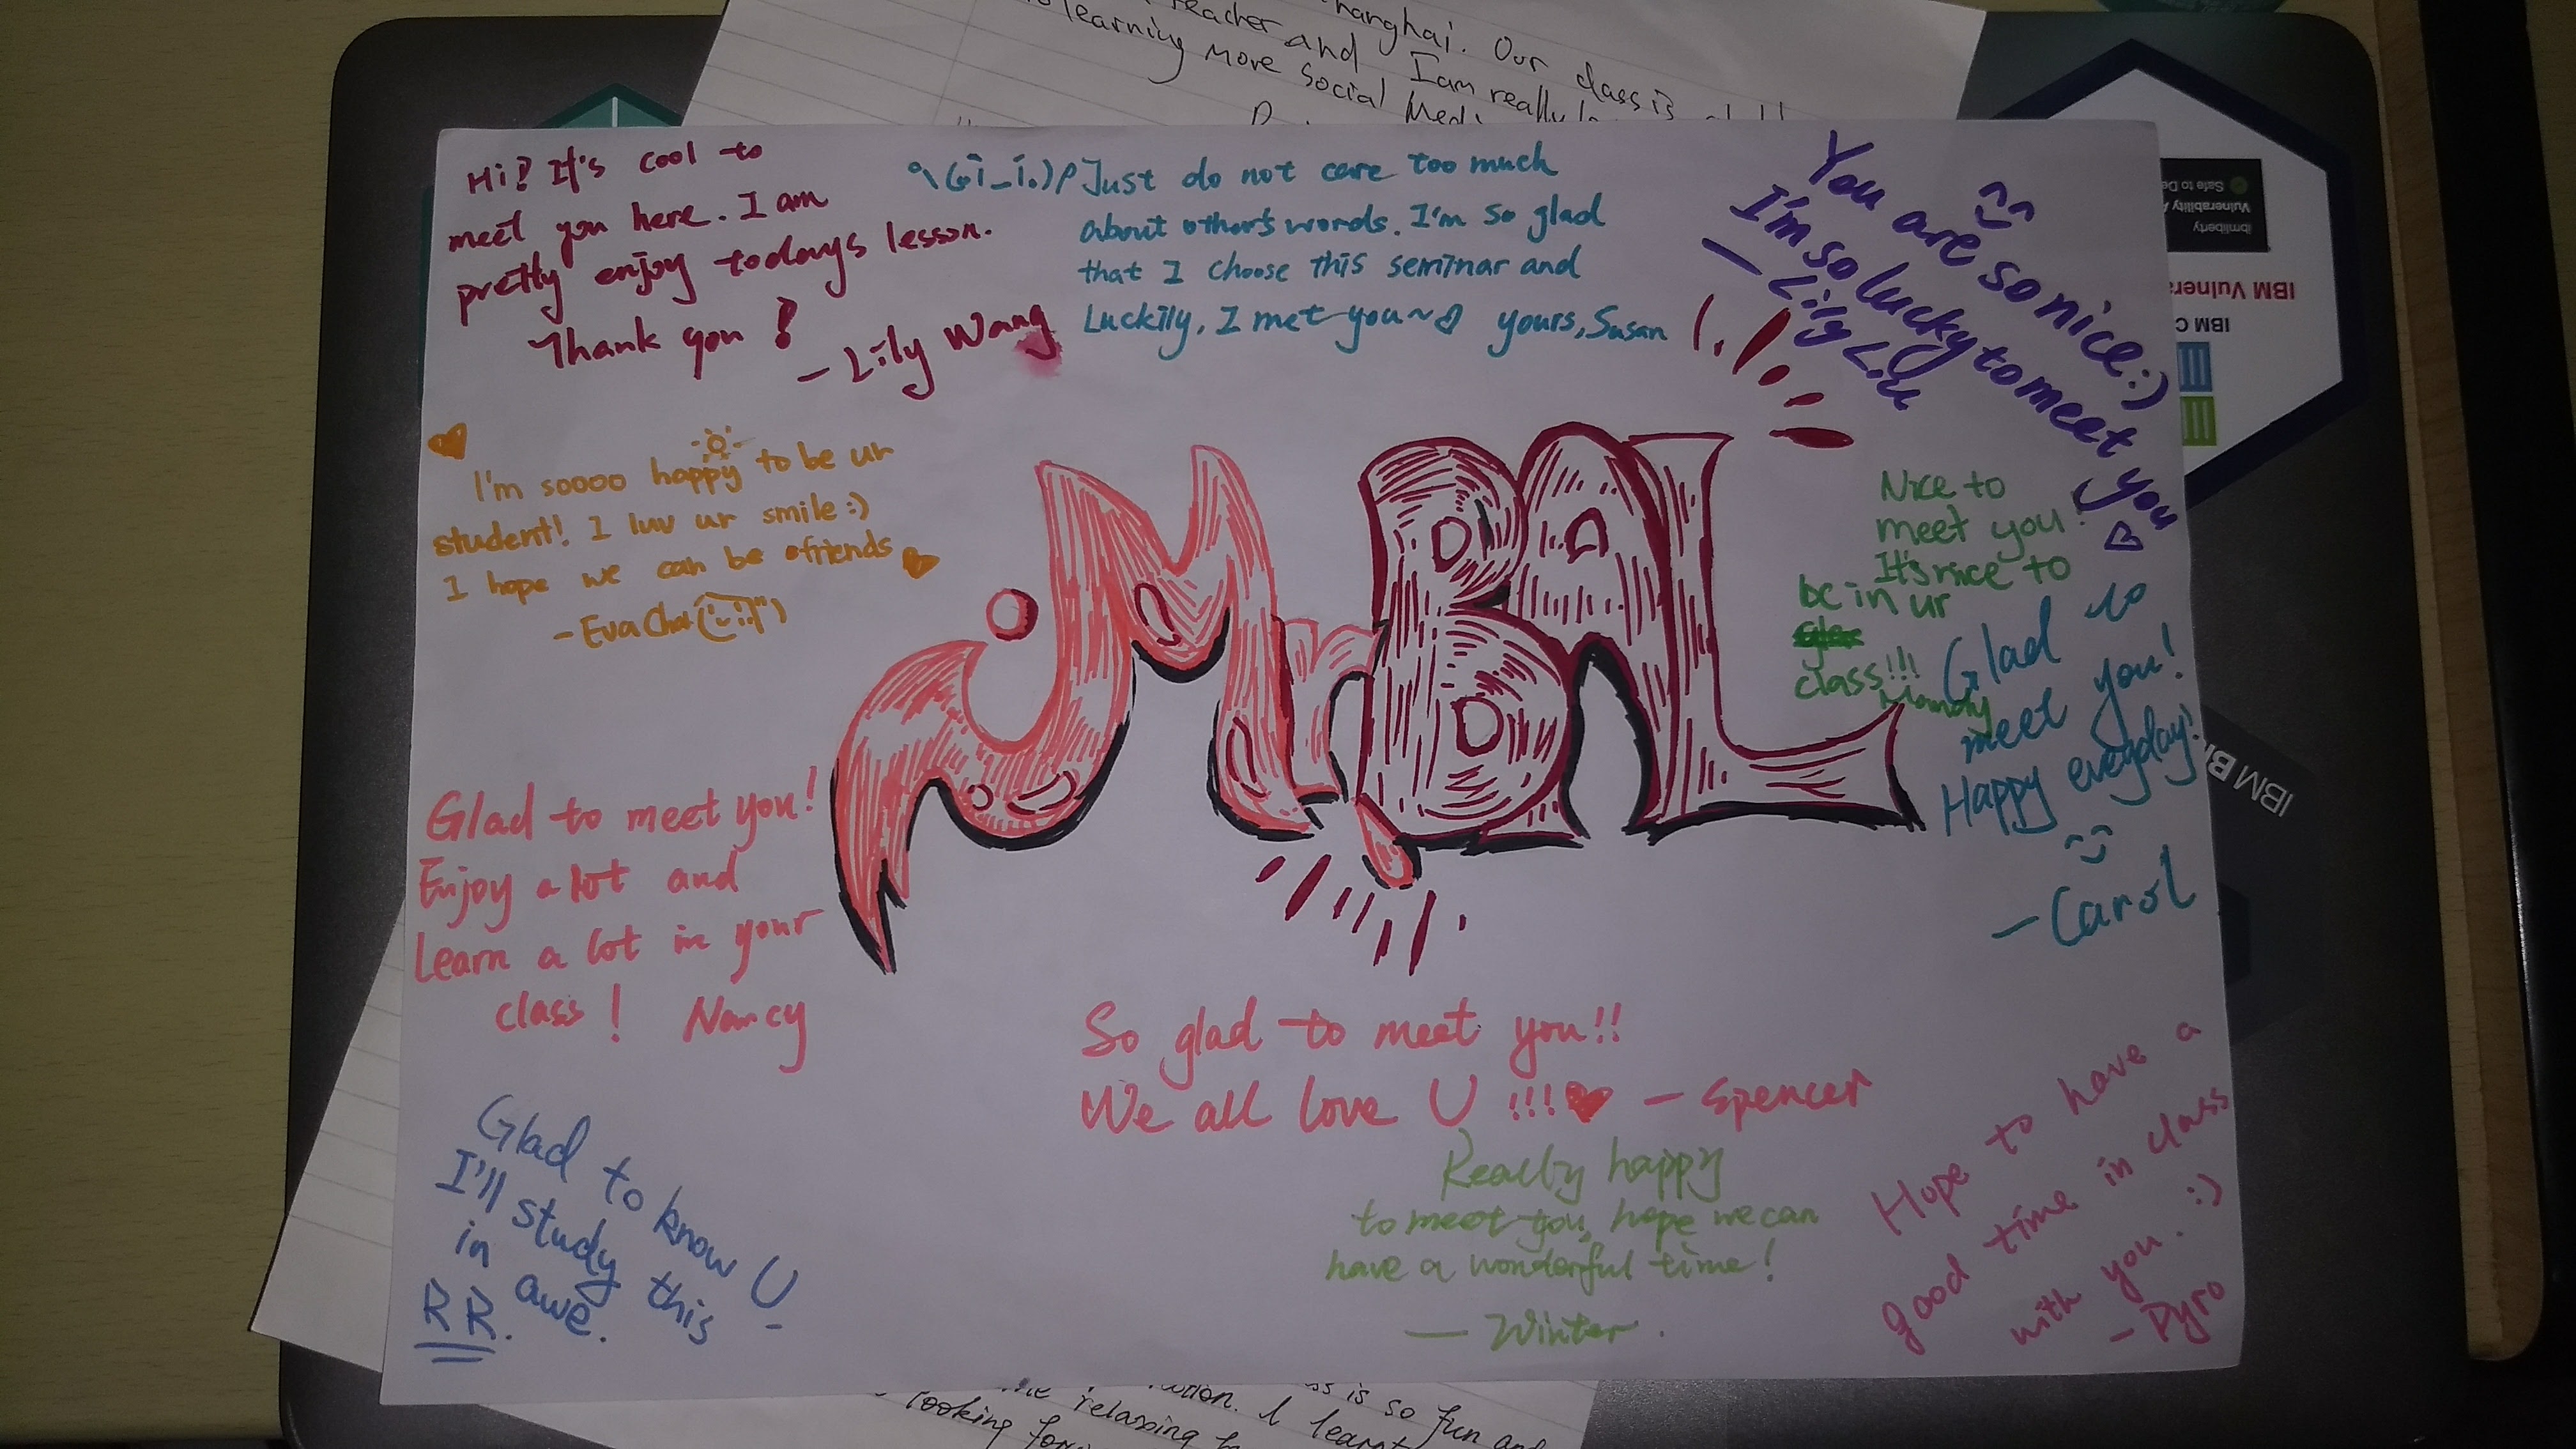 Shanghai. Our class is
teacher and I am really
learning more Social
Hi! It's cool to
meet you here. I am
pretty enjoy todays lesson.
Thank you!
- Lily Wang
Just do not care too much
about other's words. I'm so glad
that I choose this seminar and
Luckily, I met you~ yours, Susan
You are so nice :)
I'm so lucky to meet you
- Lily Liu
I'm soooo happy to be ur
student! I luv ur smile :)
I hope we can be friends
- Eva
Mr BAL
Nice to
meet you!
It's nice to
be in ur
class!!!
Mandy
Glad to
meet you!
Happy everyday!
- Carol
Glad to meet you!
Enjoy a lot and
Learn a lot in your
class! Nancy
So glad to meet you!!
We all love U !!! - Spencer
Glad to know U
I'll study this
in awe.
R R.
Really happy
to meet you, hope we can
have a wonderful time!
- Winter.
Hope to have a
good time in class
with you. :)
- Pyro
is so fun and
relaxing
I learnt
looking
Safe to De
Vulnerability
ibmliberty
IBM Vulnera
IBM C
IBM